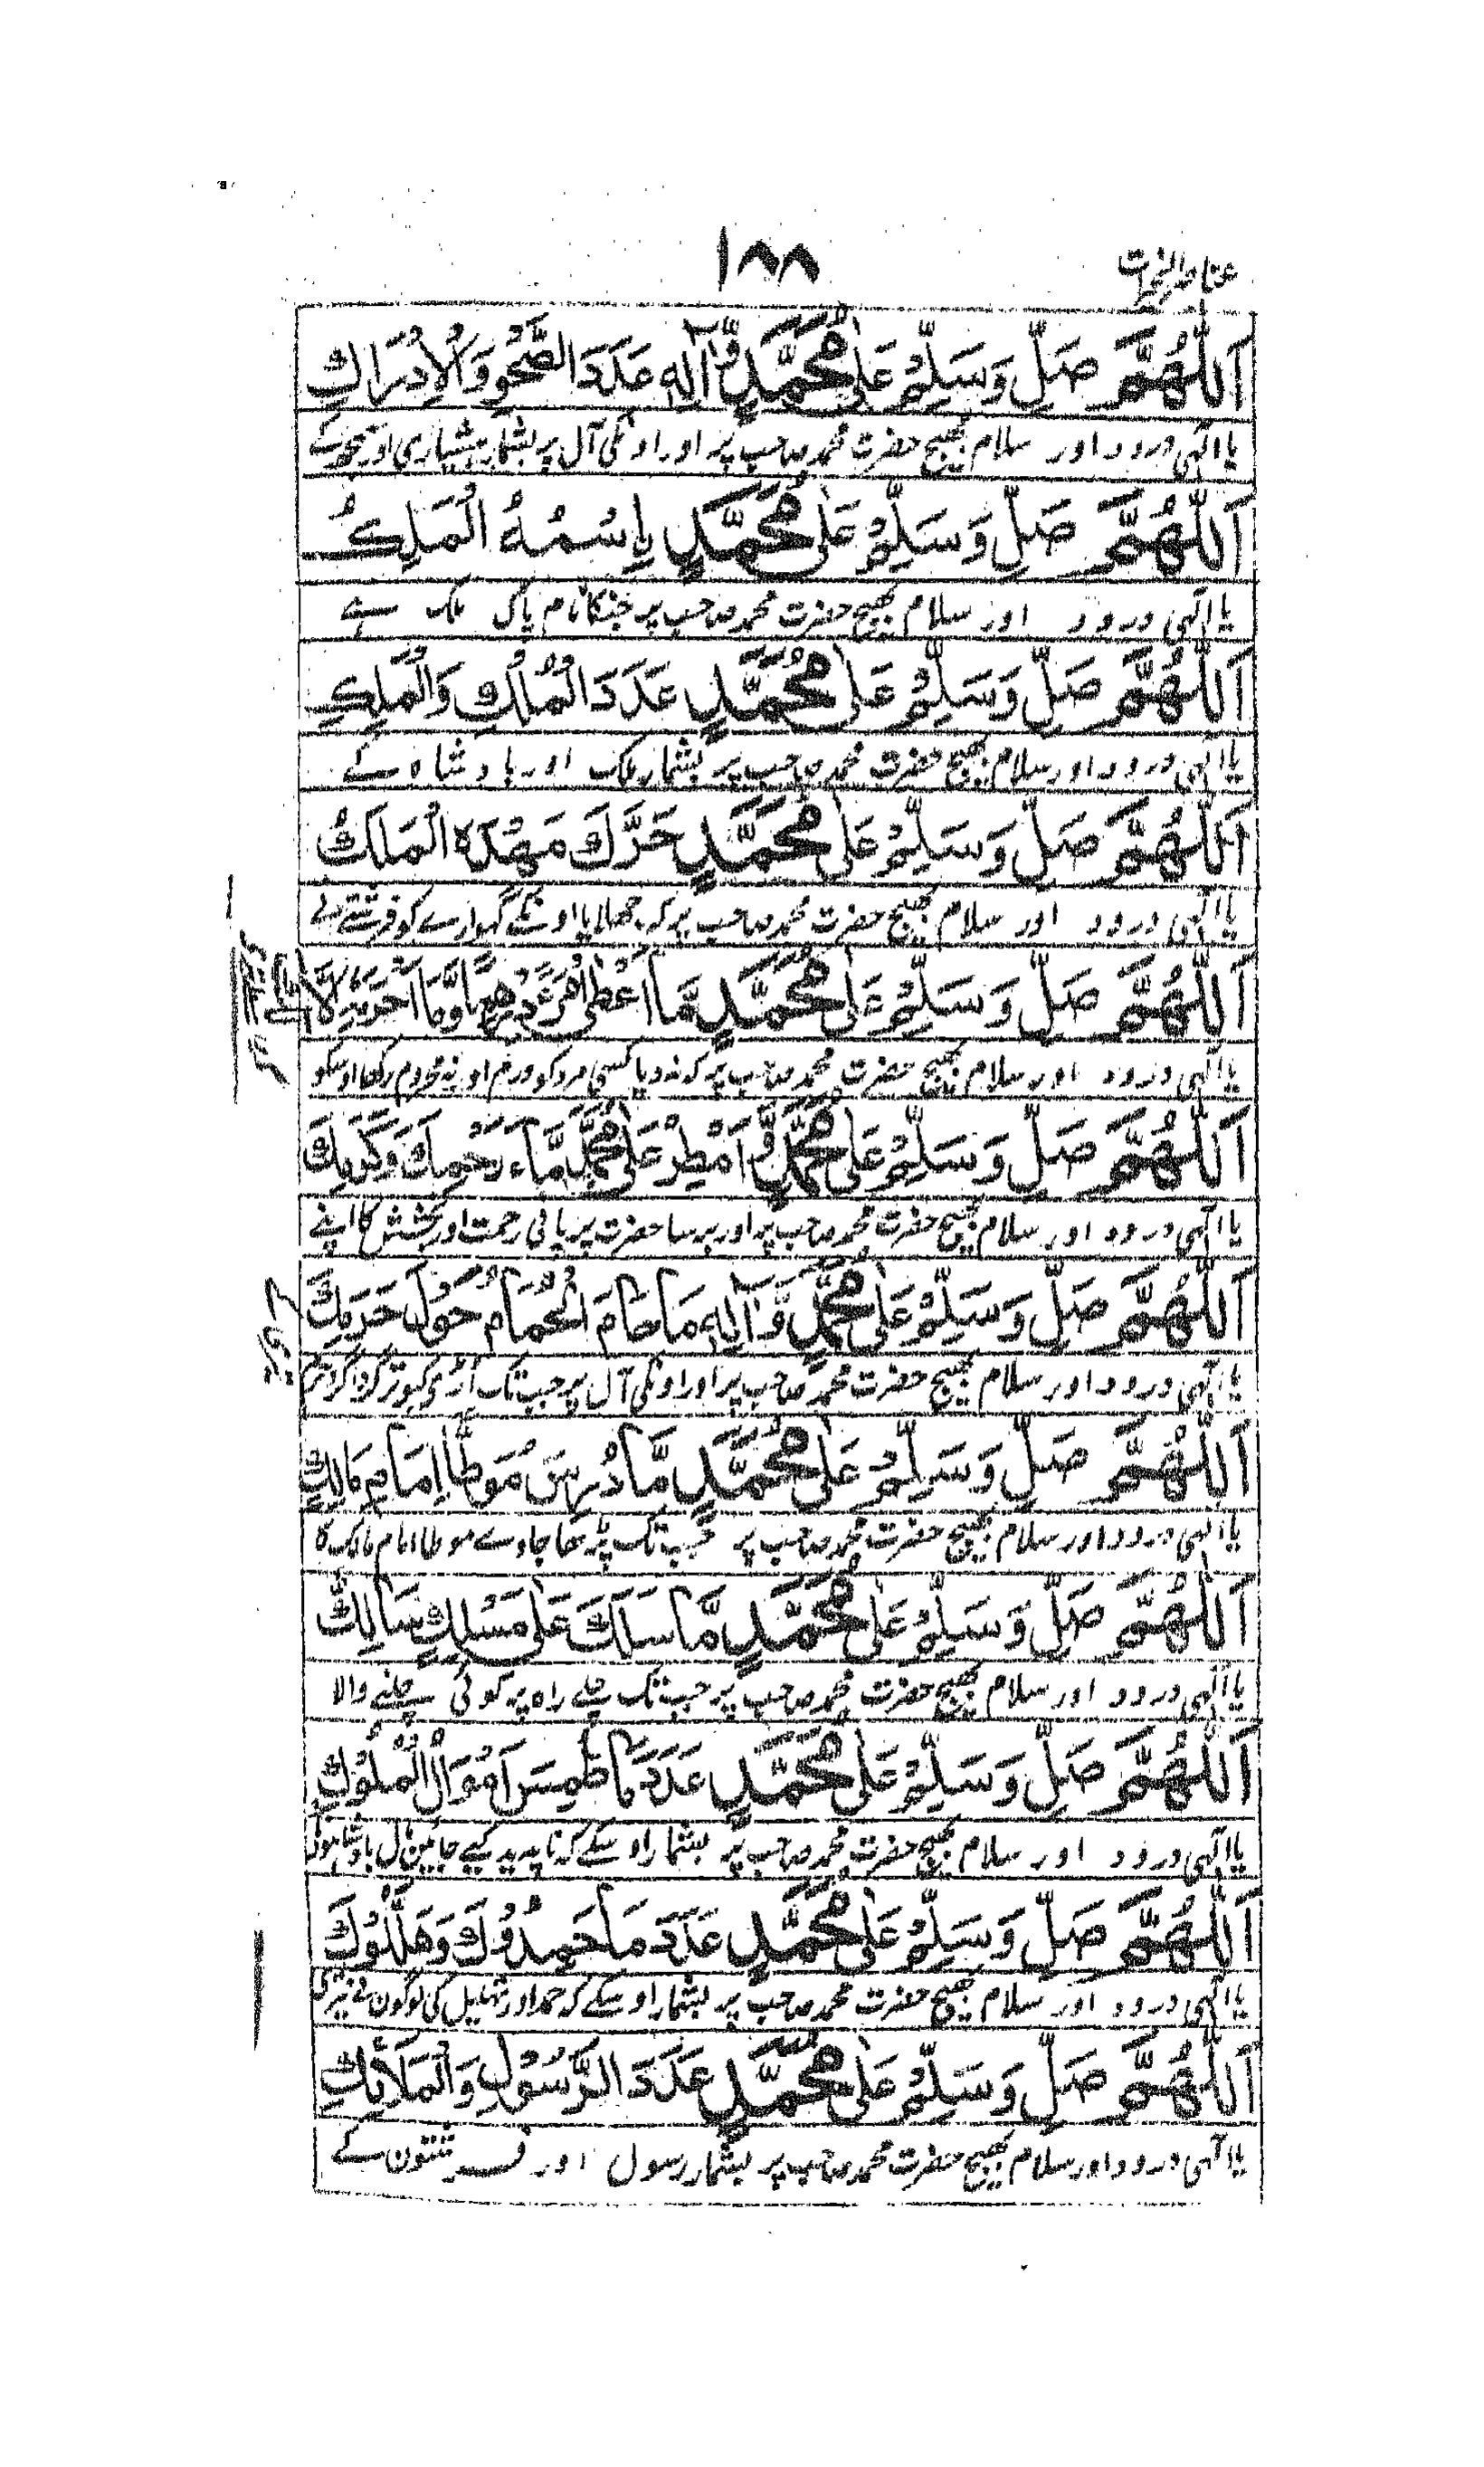 ١٨٨
اَللّٰهُمَّ صَلِّ وَسَلِّمْ عَلٰى مُحَمَّدٍ وَّاٰلِهٖ عَدَدَ الصَّحْوِ وَالْاِدْرَاكِ
یا الٰہی درود اور سلام بھیج حضرت محمد صاحب پر اور اونکی آل پر بشمار ہشیاری اور سمجھ کے
اَللّٰهُمَّ صَلِّ وَسَلِّمْ عَلٰى مُحَمَّدٍ بِاِسْمُهُ الْمَلِكُ
یا الٰہی درود اور سلام بھیج حضرت محمد صاحب پر جنکا نام پاک ملک ہے
اَللّٰهُمَّ صَلِّ وَسَلِّمْ عَلٰى مُحَمَّدٍ عَدَدَ الْمُلْكِ وَالْمَلِكِ
یا الٰہی درود اور سلام بھیج حضرت محمد صاحب پر بشمار ملک اور بادشاہ کے
اَللّٰهُمَّ صَلِّ وَسَلِّمْ عَلٰى مُحَمَّدٍ حَرَّكَ مَهْدَهُ الْمَلَكُ
یا الٰہی درود اور سلام بھیج حضرت محمد صاحب پر کہ جھلایا اونکے گہوارے کو فرشتے نے
اَللّٰهُمَّ صَلِّ وَسَلِّمْ عَلٰى مُحَمَّدٍ مَّا اَعْطٰى دِرْهَمًا وَّمَا
یا الٰہی درود اور سلام بھیج حضرت محمد صاحب پر کہ نہ دیا کسی مرد کو درم اور نہ محروم رکھا اوسکو
اَللّٰهُمَّ صَلِّ وَسَلِّمْ عَلٰى مُحَمَّدٍ وَّاَمْطِرْ عَلٰى مُحَمَّدٍ مَّاءَ رَحْمِكَ وَكَرَمِكَ
یا الٰہی درود اور سلام بھیج حضرت محمد صاحب پر اور برسا حضرت پر پانی رحمت اور بخشش کا اپنے
اَللّٰهُمَّ صَلِّ وَسَلِّمْ عَلٰى مُحَمَّدٍ وَّاٰلِهٖ مَا حَامَ الْحَمَامُ حَوْلَ حَرَمِكَ
یا الٰہی درود اور سلام بھیج حضرت محمد صاحب پر اور اونکی آل پر جب تک اڑے کبوتر گرداگرد حرم
اَللّٰهُمَّ صَلِّ وَسَلِّمْ عَلٰى مُحَمَّدٍ مَّا دُرِسَ مُوَطَّا اِمَامِ مَالِكٍ
یا الٰہی درود اور سلام بھیج حضرت محمد صاحب پر جب تک پڑھا جاوے موطا امام مالک کا
اَللّٰهُمَّ صَلِّ وَسَلِّمْ عَلٰى مُحَمَّدٍ مَّا سَلَكَ عَلٰى مَسْلِكٍ سَالِكٌ
یا الٰہی درود اور سلام بھیج حضرت محمد صاحب پر جب تک چلے راہ پر کوئی چلنے والا
اَللّٰهُمَّ صَلِّ وَسَلِّمْ عَلٰى مُحَمَّدٍ عَدَدَ مَا طُمِسَ اَمْوَالُ الْمُلُوْكِ
یا الٰہی درود اور سلام بھیج حضرت محمد صاحب پر بشمار اوسکے کہ ناپدید کیے جاہین مال بادشاہونکے
اَللّٰهُمَّ صَلِّ وَسَلِّمْ عَلٰى مُحَمَّدٍ عَدَدَ مَا حَمِدُوْكَ وَهَلَّلُوْكَ
یا الٰہی درود اور سلام بھیج حضرت محمد صاحب پر بشمار اوسکے کہ حمد اور تہلیل کی لوگون نے تیری
اَللّٰهُمَّ صَلِّ وَسَلِّمْ عَلٰى مُحَمَّدٍ عَدَدَ الرَّسُوْلِ وَالْمَلَائِكِ
یا الٰہی درود اور سلام بھیج حضرت محمد صاحب پر بشمار رسول اور فرشتون کے